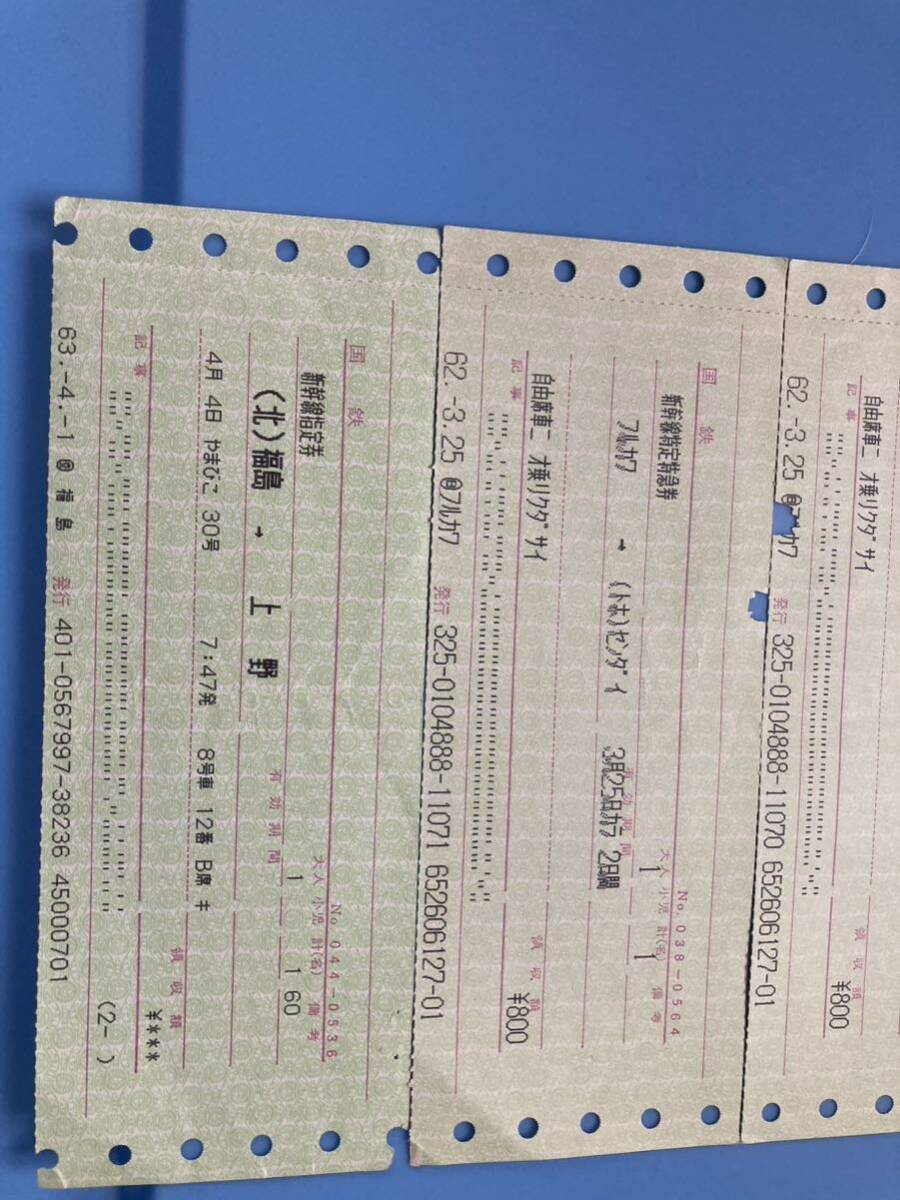 国鉄
No. 044-0536
新幹線指定券
大人 小児 計(名) 備考
1 1 60
(北)福島 → 上野
有効期間
4月 4日 やまびこ 30号 7:47発 8号車 12番 B席 キ
記事
領収額
¥***
(2- )
63.-4.-1 福島 発行 401-0567997-38236 45000701
国鉄
No. 038-0564
新幹線特定特急券
大人 小児 計(名) 備考
1 1
フルカワ → (トホ)センダイ
有効期間
3月25日カラ 2日間
自由席車ニ オ乗リクダサイ
記事
領収額
¥800
62.-3.25 @フルカワ 発行 325-0104888-11071 652606127-01
自由席車ニ オ乗リクダサイ
記事
領収額
¥800
62.-3.25 発行 325-0104888-11070 652606127-01